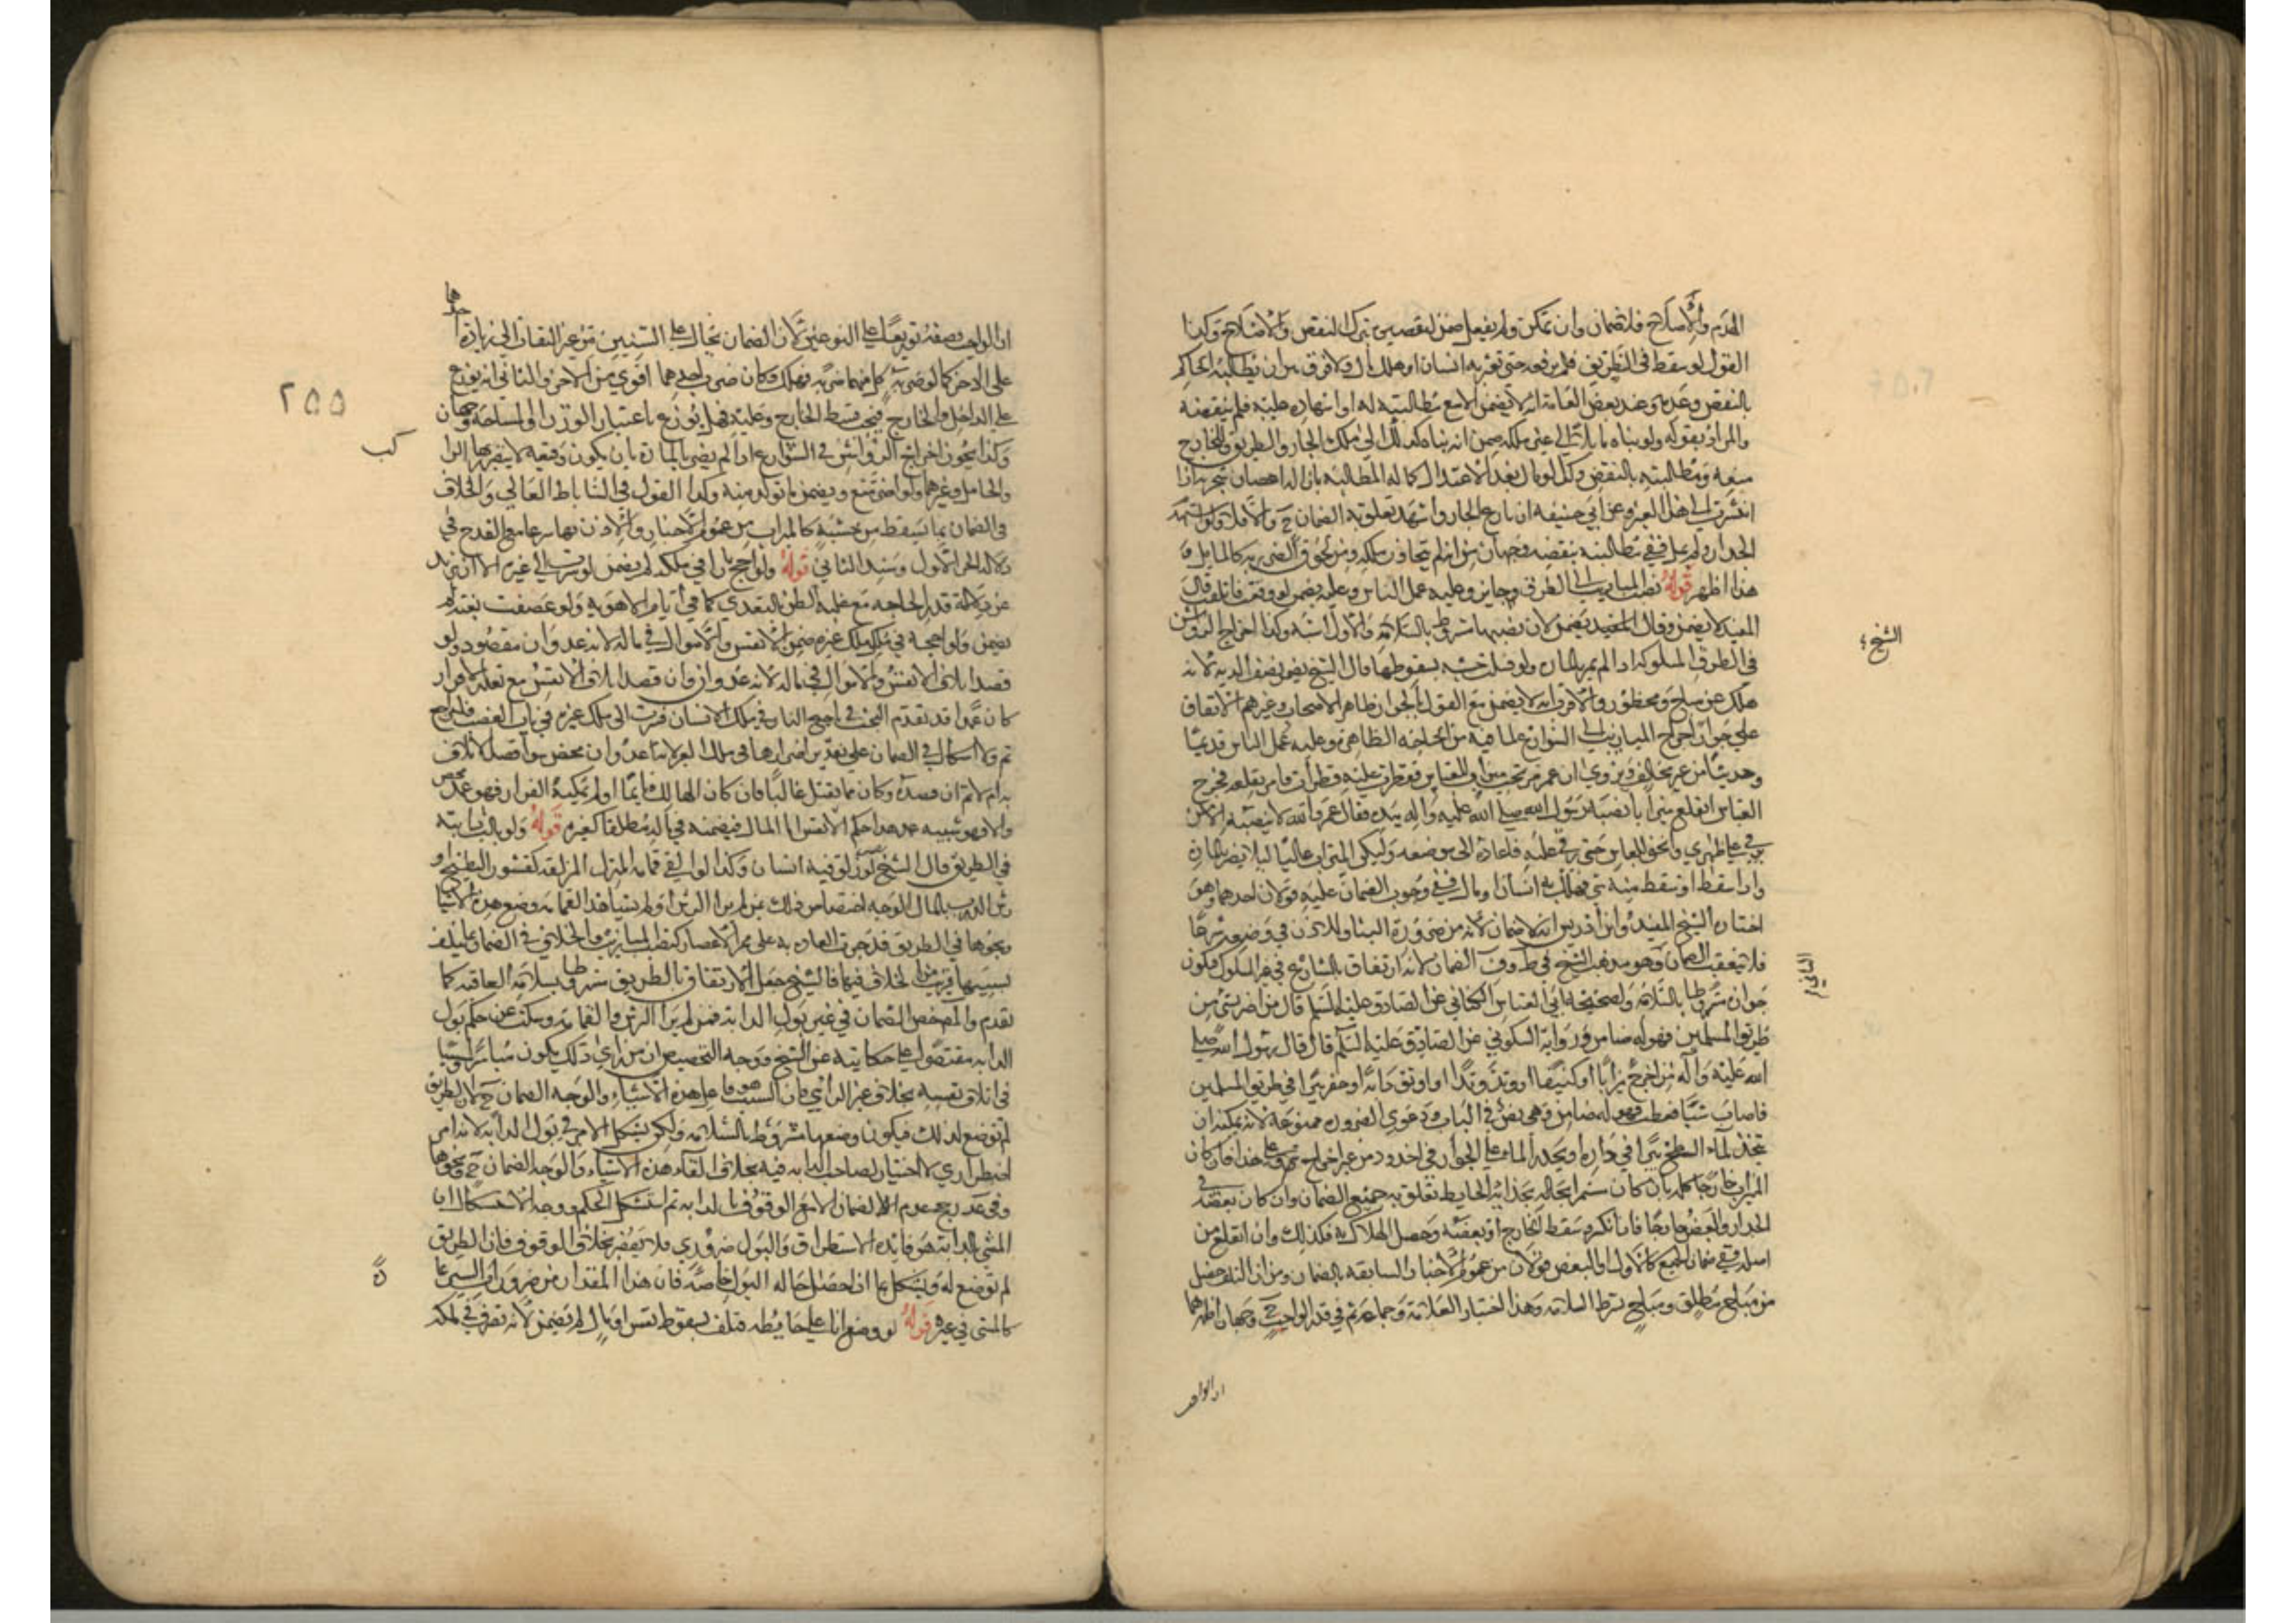 الهدم والاصلاح فلا ضمان وان تمكن ولم يفعل ضمن لتقصيره بترك النقض والاصلاح وكذا
القول لو سقط في الطريق فلم يرفعه حتى تعثر به انسان او هلك مال ولا فرق بين ان يطالبه الحاكم
بالنقض وعدمه وعند بعض العامة انه لا يضمن الا مع مطالبته له او اشهاده عليه فلم ينقضه
والمراد بقوله ولو بناه مايلا الى غير ملكه ضمن انه بناه كذلك الى ملك الجار والطريق وللجار
منعه ومطالبته بالنقض وكذا لو مال بعد الاعتدال
الى هذا الجزء وعن ابي حنيفه ان نازع الجار واشهد تعلق به الضمان ح والا فلا ولو استهدم
الجدار ولم يمل ففي مطالبته بنقضه وجهان من انه لم يتجاوز ملكه ومن لحوق الضرر به كالمايل
هذا اظهر قوله نصب الميازيب الى الطرق جايز وعليه عمل الناس وهل يضمن لو وقعت فاتلفت قال
المفيد لا يضمن وقال الشيخ يضمن لان نصبها مشروط بالسلامة والاول اشبه وكذا اخراج الرواشن
في الطرق المسلوكة اذا لم يضر بالمارة ولو قتلت خشبه بسقوطها قال الشيخ يضمن نصف الدية لانه
هلك عن مباح ومحظور والاقرب انه لا يضمن مع القول بالجواز ظاهر الاصحاب وغيرهم الاتفاق
على جواز اخراج الميازيب الى الشوارع لما فيه من الحاجة الظاهرة وعليه عمل الناس قديما
وحديثا من غير مخالف وروي ان عمر مر تحت ميزاب للعباس فقطرت عليه قطرات فامر بقلعه فخرج
العباس اتقلع ميزابا نصبه رسول الله صلى الله عليه واله بيده فقال عمر والله لا ينصبه الا من
يرقى على ظهري وانحنى للعباس حتى رقى عليه فاعاده الى موضعه وليكن الميزاب عاليا ليلا يضر بالمارة
واذا سقط او سقط منه شي فهلك به انسان او مال ففي وجوب الضمان عليه قولان احدهما وهو
اختاره الشيخ المفيد وابن ادريس انه لا ضمان لانه من ضرورة البناء وللاذن في وضعه شرعا
فلا يتعقب الضمان وهو مذهب الشيخ في ط وف الضمان لانه ارتفاق بالشارع في غير السلوك فيكون
جوازه مشروطا بالسلامة ولصحيحة ابي الصباح الكناني عن الصادق عليه السلم قال من اضر بشي من
طريق المسلمين فهو له ضامن ورواية السكوني عن الصادق عليه السلم قال قال رسول الله صلى
الله عليه وآله من اخرج ميزابا او كنيفا او وتد وتدا او اوثق دابة او حفر بيرا في طريق المسلمين
فاصاب شيا فعطب فهو له ضامن وهي نص في الباب ودعوى الضرورة ممنوعة لانه يمكنه ان
يتخذ لماء السطح بيرا في داره او يحدر الماء على الجدار في اخدود من غير اخراج شي وعلى هذا فان كان
الميزاب خارجا كله بان كان سمرا بحاله بحذاء الحايط تعلق به جميع الضمان وان كان بعضه في
الجدار والبعض خارجا فان انكسر وسقط الخارج او بعضه وحصل الهلاك به فكذلك وان انقلع من
اصله ففي ضمان الجميع كالاول او البعض قولان من عموم الاخبار السابقة بالضمان ومن ان التلف حصل
من مباح مطلق ومباح بشرط السلامة وهذا اختيار العلامة وجماعة ثم في قدر الواجب ح وجهان اظهرهما
ان الواجب
الشيخ
الثاني
٢٥٥
ان الواجب نصفه توزيعا على النوعين لان الضمان يحال على السببين من غير التفات الى زيادة احدهما
على الاخر كما لو ضربه كل منهما ضربة فهلك وكان ضرب احدهما اقوى من الاخر والثاني انه يوزع
على الداخل والخارج فيجب قسط الخارج وعليه فهل يوزع باعتبار الوزن او المساحة وجهان
وكذا يجوز اخراج الرواشن في الشوارع اذا لم يضر بالمارة بان يكون رفيعة لا يتضرر بها الراكب
والحامل وغيرهما ولو اضر منع ويضمن ما تولد منه وكذا القول في الساباط العالي والخلاف
في الضمان بما يسقط من خشبه كالميزاب من عموم الاخبار والاذن فيها شرعا مع القدح في
دلالة الخبر الاول وسند الثاني قوله ولو اجج نارا في ملكه لم يضمن لو سرت الى غيره الا ان يزيد
عن قدر الحاجة مع غلبة الظن بالتعدي كما في ايام الاهوية ولو عصفت بغتة لم
يضمن ولو اججه في ملك غيره ضمن الانفس والاموال في ماله لانه عدوان مقصود ولو
قصد اتلاف الانفس والاموال في ماله لانه عدوان وان قصد اتلاف الانفس مع تعذر الفرار
كان عمدا قد تقدم البحث في تاجيج النار في ملك الانسان فسرت الى ملك غيره في باب الغصب فليراجع
ثم ولا اشكال في الضمان على تقدير اضرامها في ملك الغير لانه عدوان محض سواء قصد الاتلاف
به ام لا ثم ان قصده وكان مما يقتل غالبا فان كان الهالك نايما او لم يمكنه الفرار فهو عمد محض
والا فهو شبيه عمد هذا حكم الانفس اما المال فيضمنه في ماله مطلقا كغيره قوله ولو بالت دابته
في الطريق قال الشيخ لو زلق فيه انسان وكذا لو القى قمامة المنزل المزلقة كقشور البطيخ او
رش الدرب بالماء والوجه اختصاص ذلك بمن لم ير الرش او لم يشاهد القمامة وضع هذه الاشيا
ونحوها في الطريق قد جرت العادة به على ممر الاعصار كنصب الميازيب والخلاف في الضمان بما يتلف
بسببها قريب من الخلاف فيها فالشيخ جعل الارتفاق بالطريق مشروطا بسلامة العاقبة كما
تقدم والمصنف خص الضمان في غير بول الدابة فمن لم ير الرش والقمامة وسكت عن حكم بول
الدابة مقتصرا على حكايته عن الشيخ ووجه التخصيص ان من راى ذلك يكون مباشرا وسببا
في اتلاف نفسه بخلاف غير الرائي فان السبب هو فاعل هذه الاشياء والوجه الضمان ح لان الطريق
لم توضع لذلك فيكون وضعها مشروطا بالسلامة ولكن يشكل الامر في بول الدابة لانه امر
اضطراري لا اختيار لصاحب الدابة فيه بخلاف القاء هذه الاشياء والوجه الضمان ح ونحوها
وفي عد رجح عدم الضمان الا مع الوقوف بالدابة ثم استشكل الحكم ووجه الاشكال ان
المشي بالدابة هو فايدة الاستطراق والبول ضروري فلا يضر بخلاف الوقوف فان الطريق
لم توضع له ويشكل بما اذا حصل حالة البول خاصة فان هذا المقدار من ضرورات السير بها
كالمشي في غيره قوله لو وضع اناء على حايطه فتلف بسقوطه نفس او مال لم يضمن لانه تصرف في ملكه